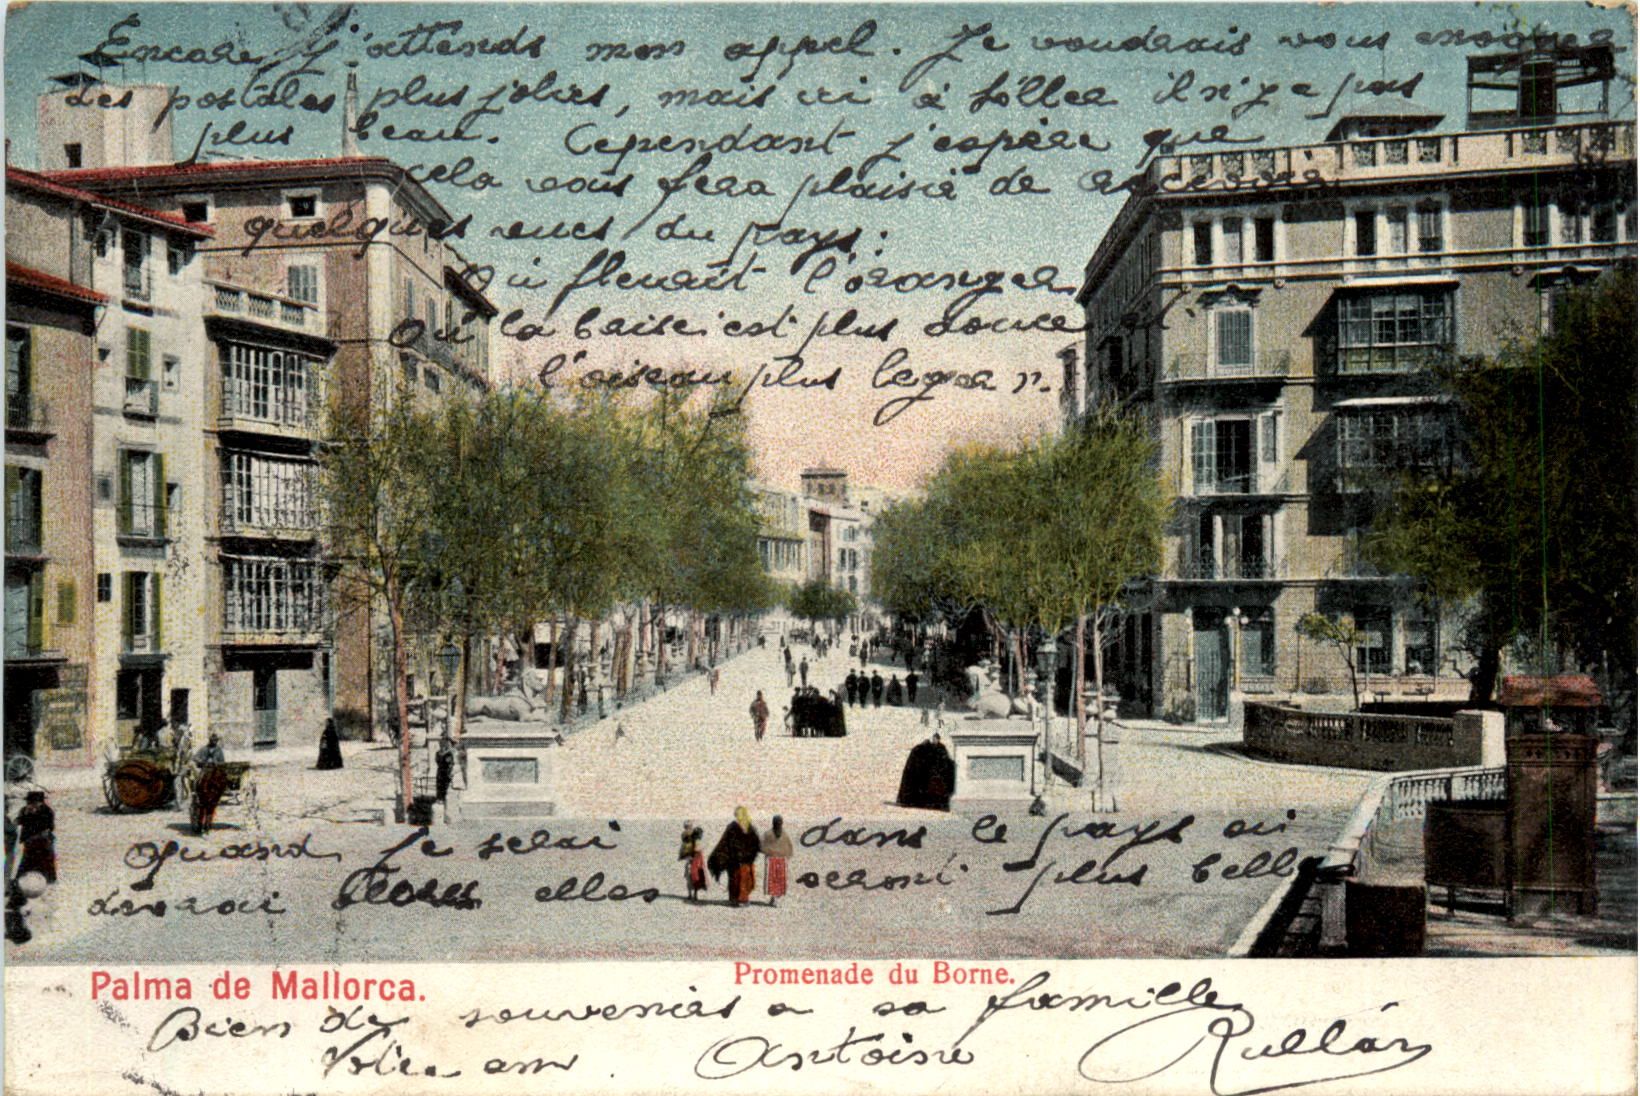 Encore j'attends mon appel. Je voudrais vous envoyer
des postales plus jolies, mais ici à Sóller il n'y a pas
plus beau. Cependant j'espère que
cela vous fera plaisir de
quelques vues du pays:
Où fleurit l'oranger
Où la brise est plus douce et
l'oiseau plus leger".
Quand je serai dans le pays où
devrai elles seront plus belles
Palma de Mallorca.
Promenade du Borne.
Bien de souvenirs a sa famille
Votre ami Antoine Rullán